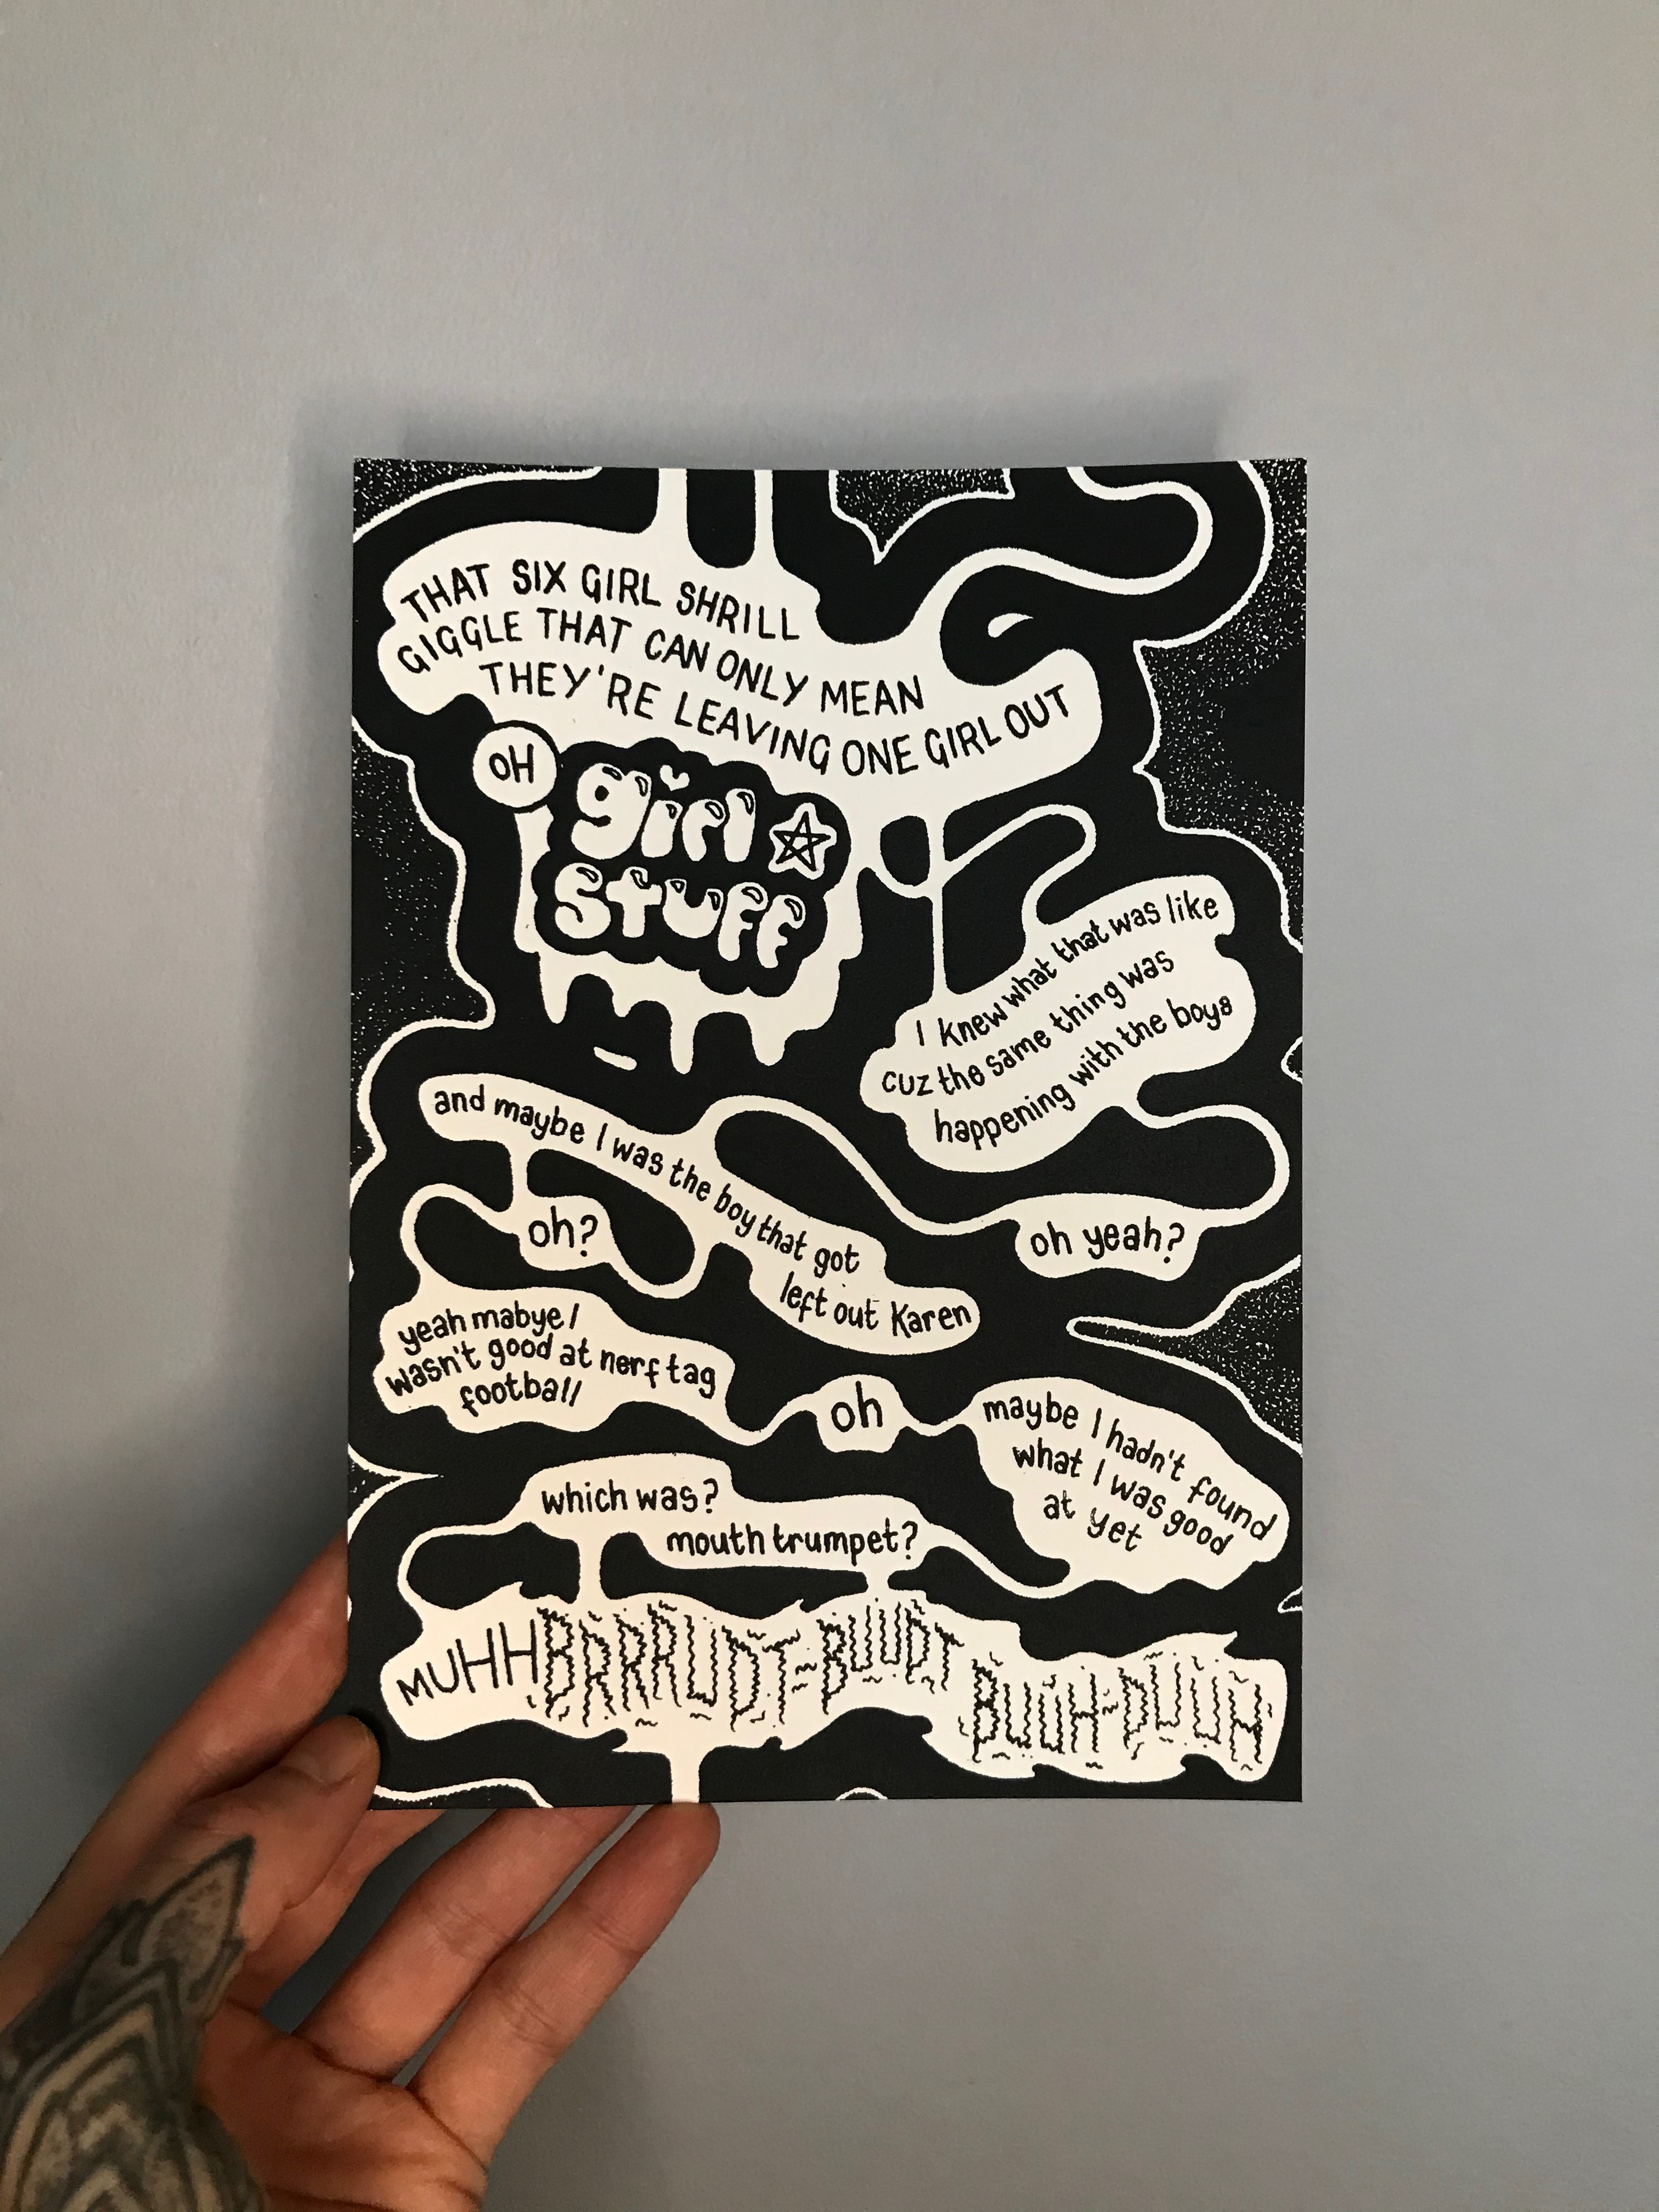 THAT SIX GIRL SHRILL
GIGGLE THAT CAN ONLY MEAN
THEY'RE LEAVING ONE GIRL OUT
OH
girl
stuff
I knew what that was like
cuz the same thing was
happening with the boys
oh yeah?
and maybe I was the boy that got
left out Karen
oh?
yeah mabye I
wasn't good at nerf tag
football
oh
maybe I hadn't found
what I was good
at yet
which was?
mouth trumpet?
MUHHBRRRUDT-BUUDT
BUUH-DUUUH